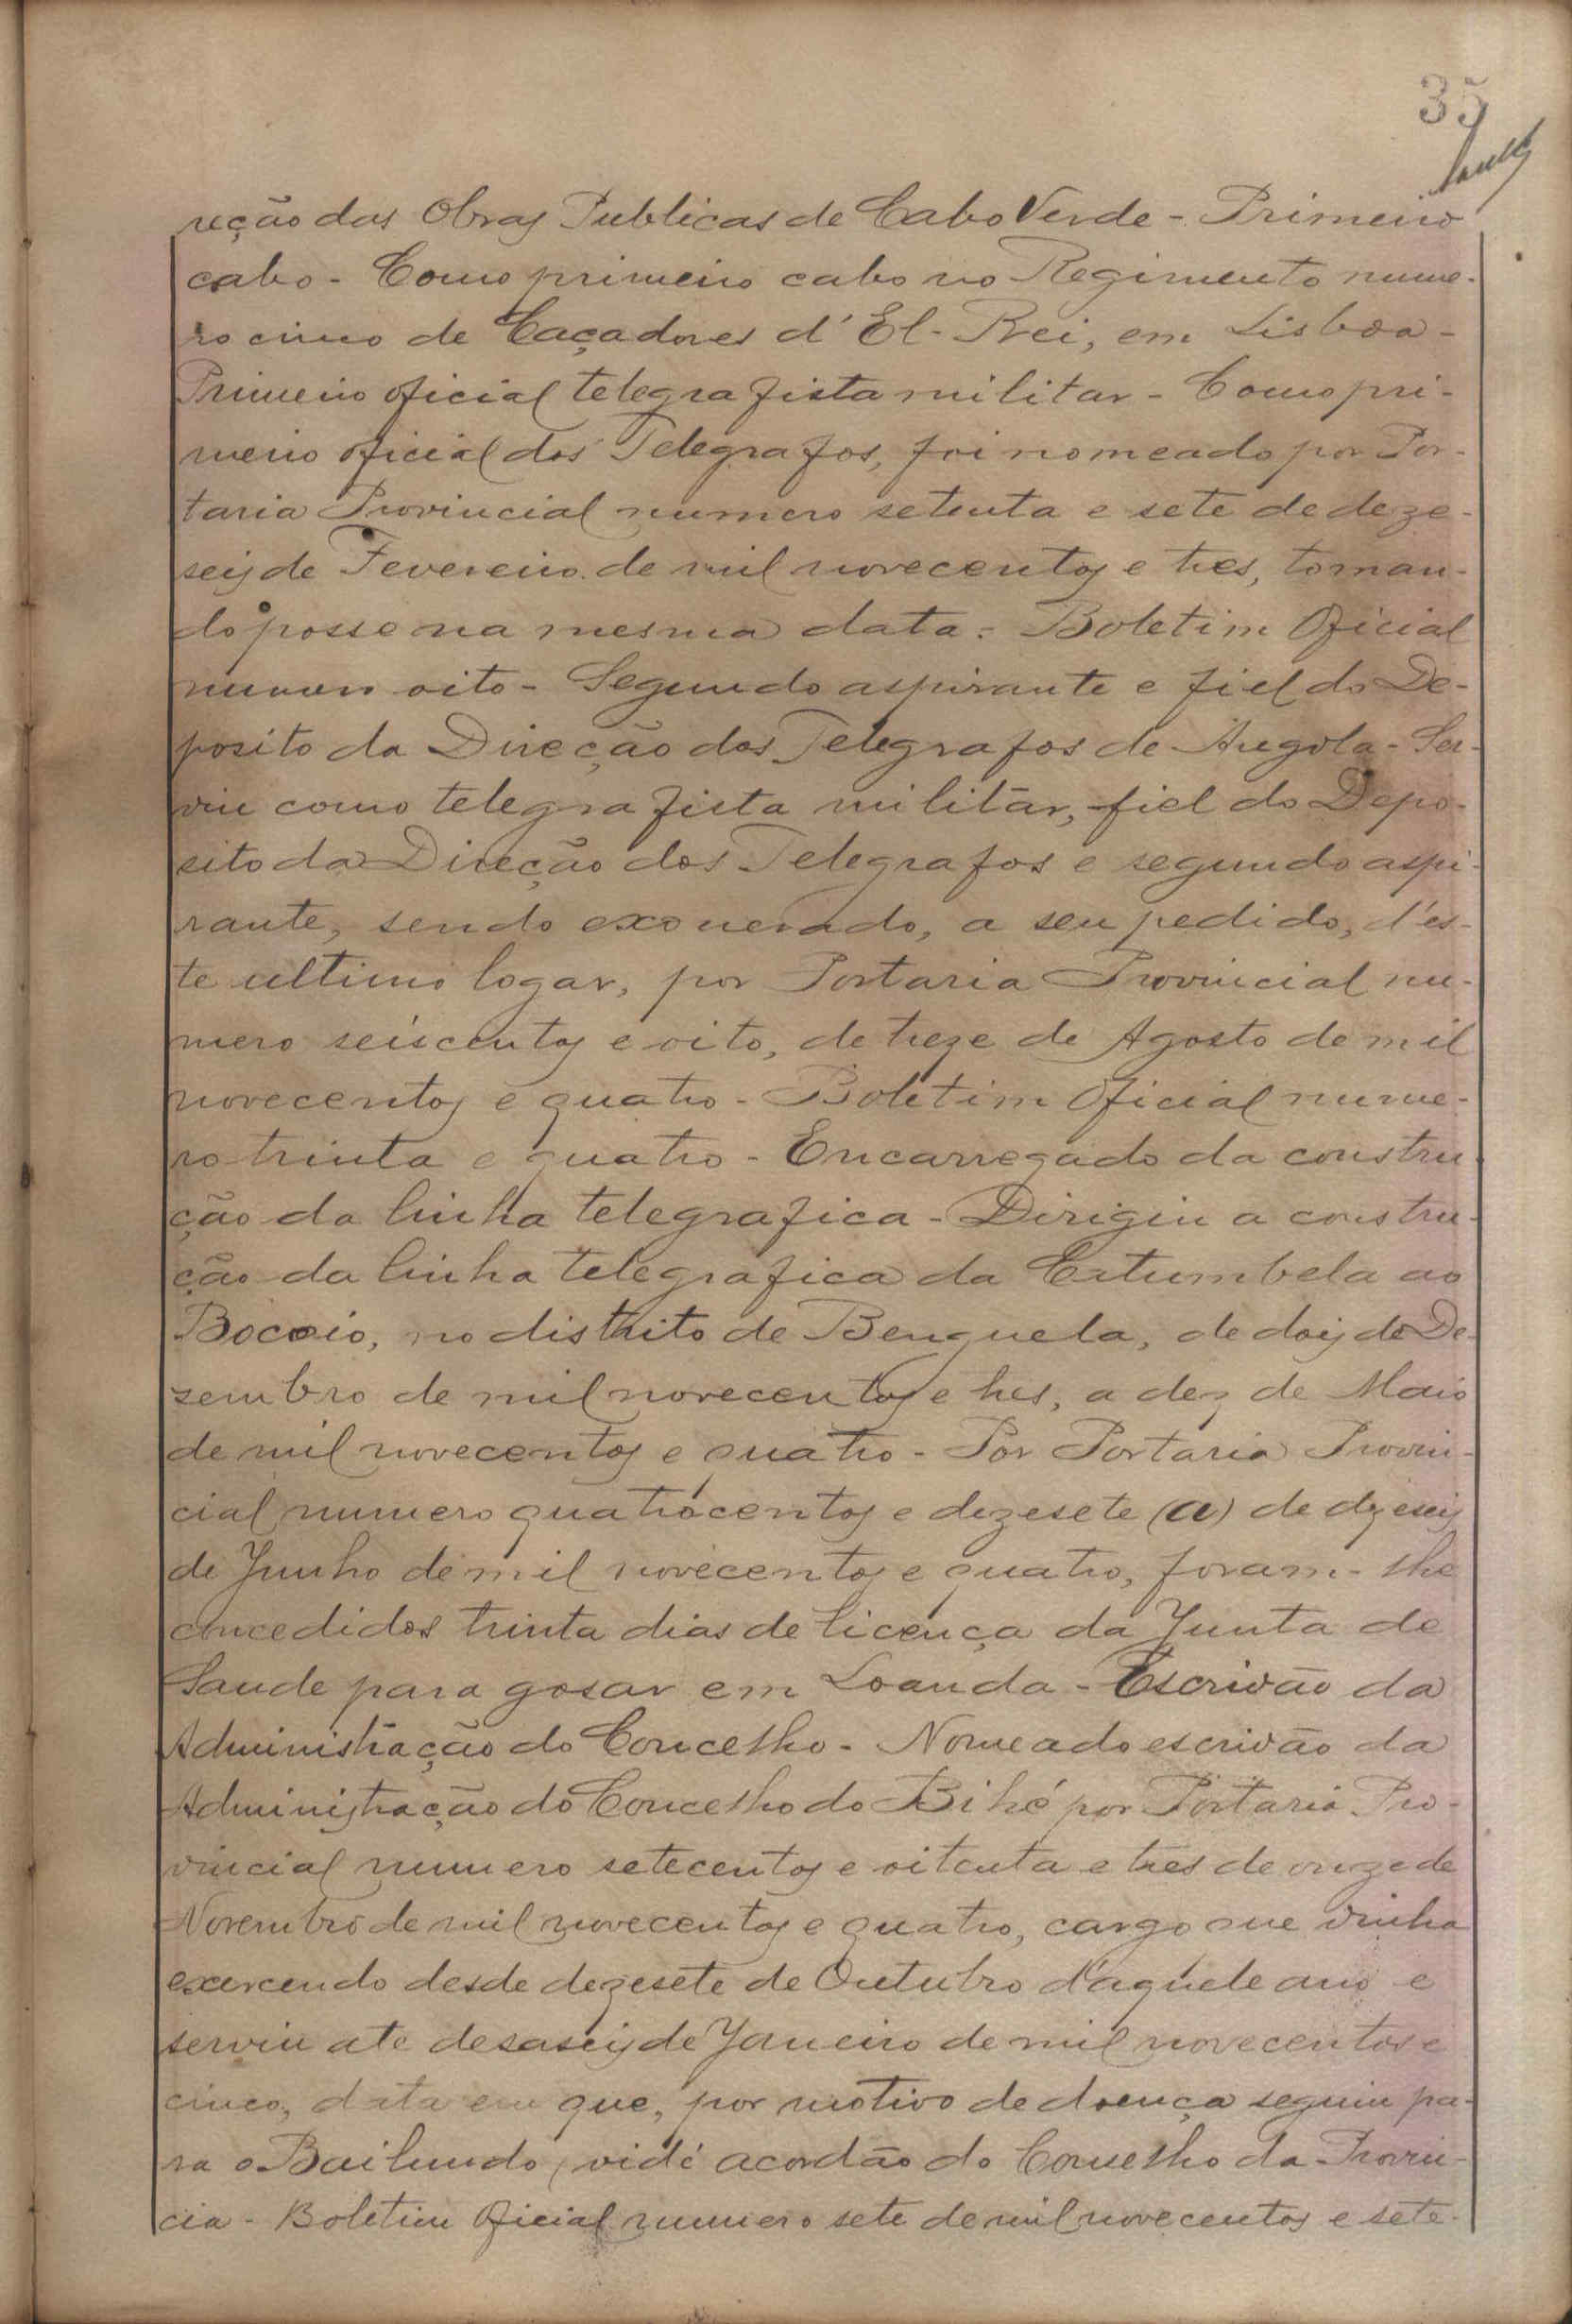 35
reção das Obras Publicas de Cabo Verde - Primeiro
cabo - Como primeiro cabo no Regimento nume-
ro cinco de Caçadores d'El-Rei, em Lisboa -
Primeiro oficial telegrafista militar - Como pri-
meiro oficial dos Telegrafos, foi nomeado por Por-
taria Provincial numero setenta e sete de deze-
seis de Fevereiro de mil novecentos e tres, toman-
do posse na mesma data. Boletim Oficial
numero oito - Segundo aspirante e fiel do De-
posito da Direcção dos Telegrafos de Angola - Ser-
viu como telegrafista militar, fiel do Depo-
sito da Direção dos Telegrafos e segundo aspi-
rante, sendo exonerado, a seu pedido, d'es-
te ultimo logar, por Portaria Provincial nu-
mero seiscentos e oito, de treze de Agosto de mil
novecentos e quatro - Boletim Oficial nume-
ro trinta e quatro - Encarregado da constru-
ção da linha telegrafica - Dirigiu a constru-
ção da linha telegrafica da Catumbela ao
Bocoio, no distrito de Benguela, de dois de De-
zembro de mil novecentos e tres, a dez de Maio
de mil novecentos e quatro - Por Portaria Provin-
cial numero quatrocentos e dezesete (a) de dezeseis
de Junho de mil novecentos e quatro, foram-lhe
concedidos trinta dias de licença da Junta de
Saude para gosar em Loanda - Escrivão da
Administração do Concelho - Nomeado escrivão da
Administração do Concelho do Bihé por Portaria Pro-
vincial numero setecentos e oitenta e tres de onze de
Novembro de mil novecentos e quatro, cargo que vinha
exercendo desde dezesete de Outubro d'aquele ano e
serviu ate desaseis de Janeiro de mil novecentos e
cinco, data em que, por motivo de doença seguiu pa-
ra o Bailundo (vidé acordão do Conselho da Provin-
cia - Boletim Oficial numero sete de mil novecentos e sete -